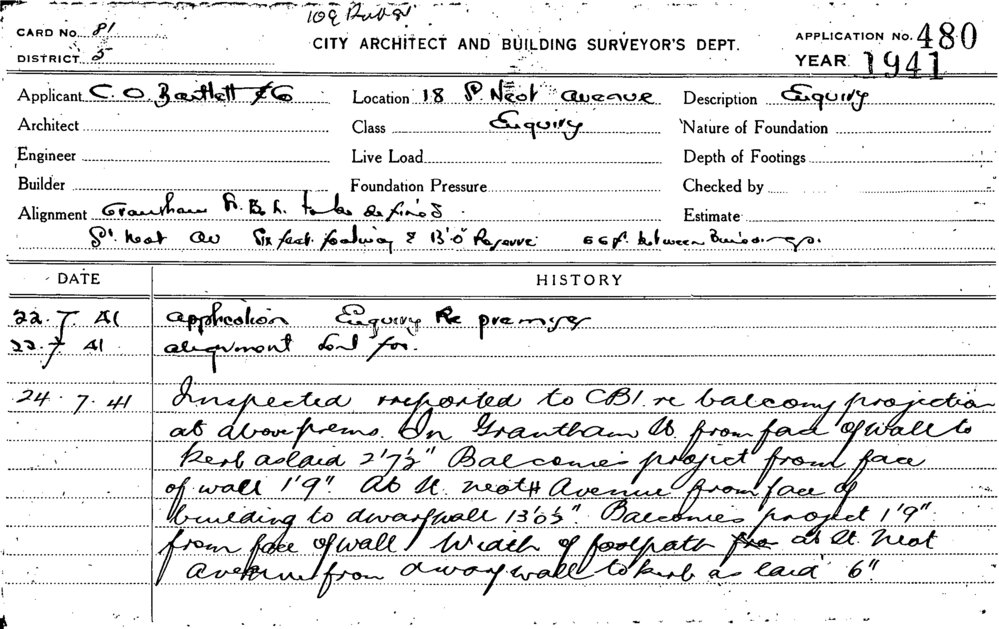 CARD No. 81
DISTRICT 5
CITY ARCHITECT AND BUILDING SURVEYOR'S DEPT.
APPLICATION No. 480
YEAR 1941
Applicant C. O. Bartlett & Co Location 18 St. Neot Avenue Description Enquiry
Architect Class Enquiry Nature of Foundation
Engineer Live Load Depth of Footings
Builder Foundation Pressure Checked by
Alignment Grantham St. B. L. to be defined. Estimate
St. Neot Av Six feet footway & 13'0" Reserve 66f. between Buildings.
DATE HISTORY
22.7.41 application Enquiry Re premises
22.7.41 alignment sent for.
24.7.41 Inspected & reported to CBI. re balcony projection
at above prems. In Grantham St from face of wall to
kerb as laid 2'7½" Balconies project from face
of wall 1'9". At St. Neot Avenue from face of
building to dwarf wall 13'0½". Balconies project 1'9"
from face of wall. Width of footpath at St Neot
Avenue from dwarf wall to kerb as laid 6"